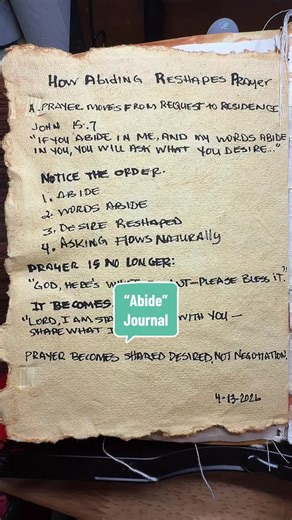 How Abiding Reshapes Prayer
A. Prayer moves from request to residence
John 15:7
"If you abide in me, and my words abide
in you, you will ask what you desire..."
Notice the order.
1. Abide
2. Words abide
3. Desire reshaped
4. Asking flows naturally
Prayer is no longer:
"God, here's — please bless it."
It becomes
"Lord, I am with you —
shape what
"Abide"
Journal
Prayer becomes shared desired, not negotiation.
4-13-2026